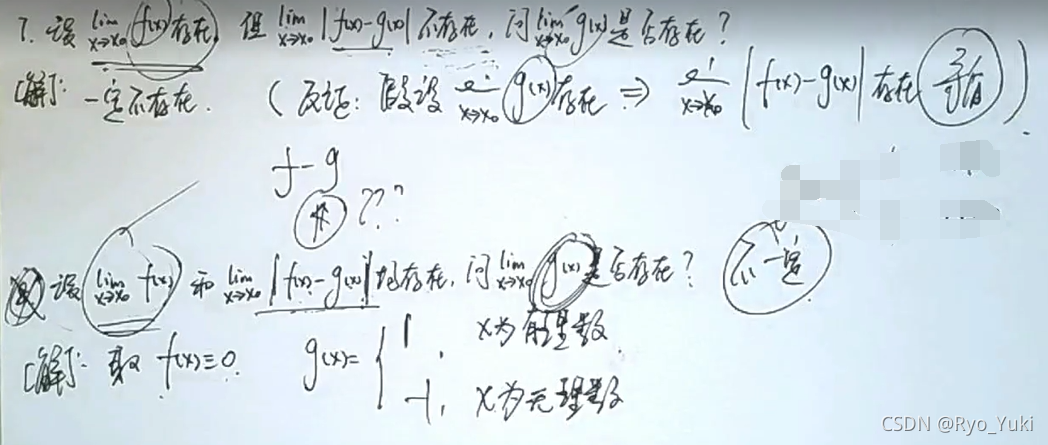 7. 设 lim x→x₀ f(x) 存在, 但 lim x→x₀ |f(x)-g(x)| 不存在, 问 lim x→x₀ g(x) 是否存在?
[解]: 一定不存在. (反证: 假设 lim x→x₀ g(x) 存在 ⇒ lim x→x₀ |f(x)-g(x)| 存在 矛盾)
f-g
???
设 lim x→x₀ f(x) 和 lim x→x₀ |f(x)-g(x)| 均存在, 问 lim x→x₀ g(x) 是否存在? 不一定
[解]: 取 f(x)≡0. g(x)= { 1, x为有理数
-1, x为无理数
CSDN @Ryo_Yuki